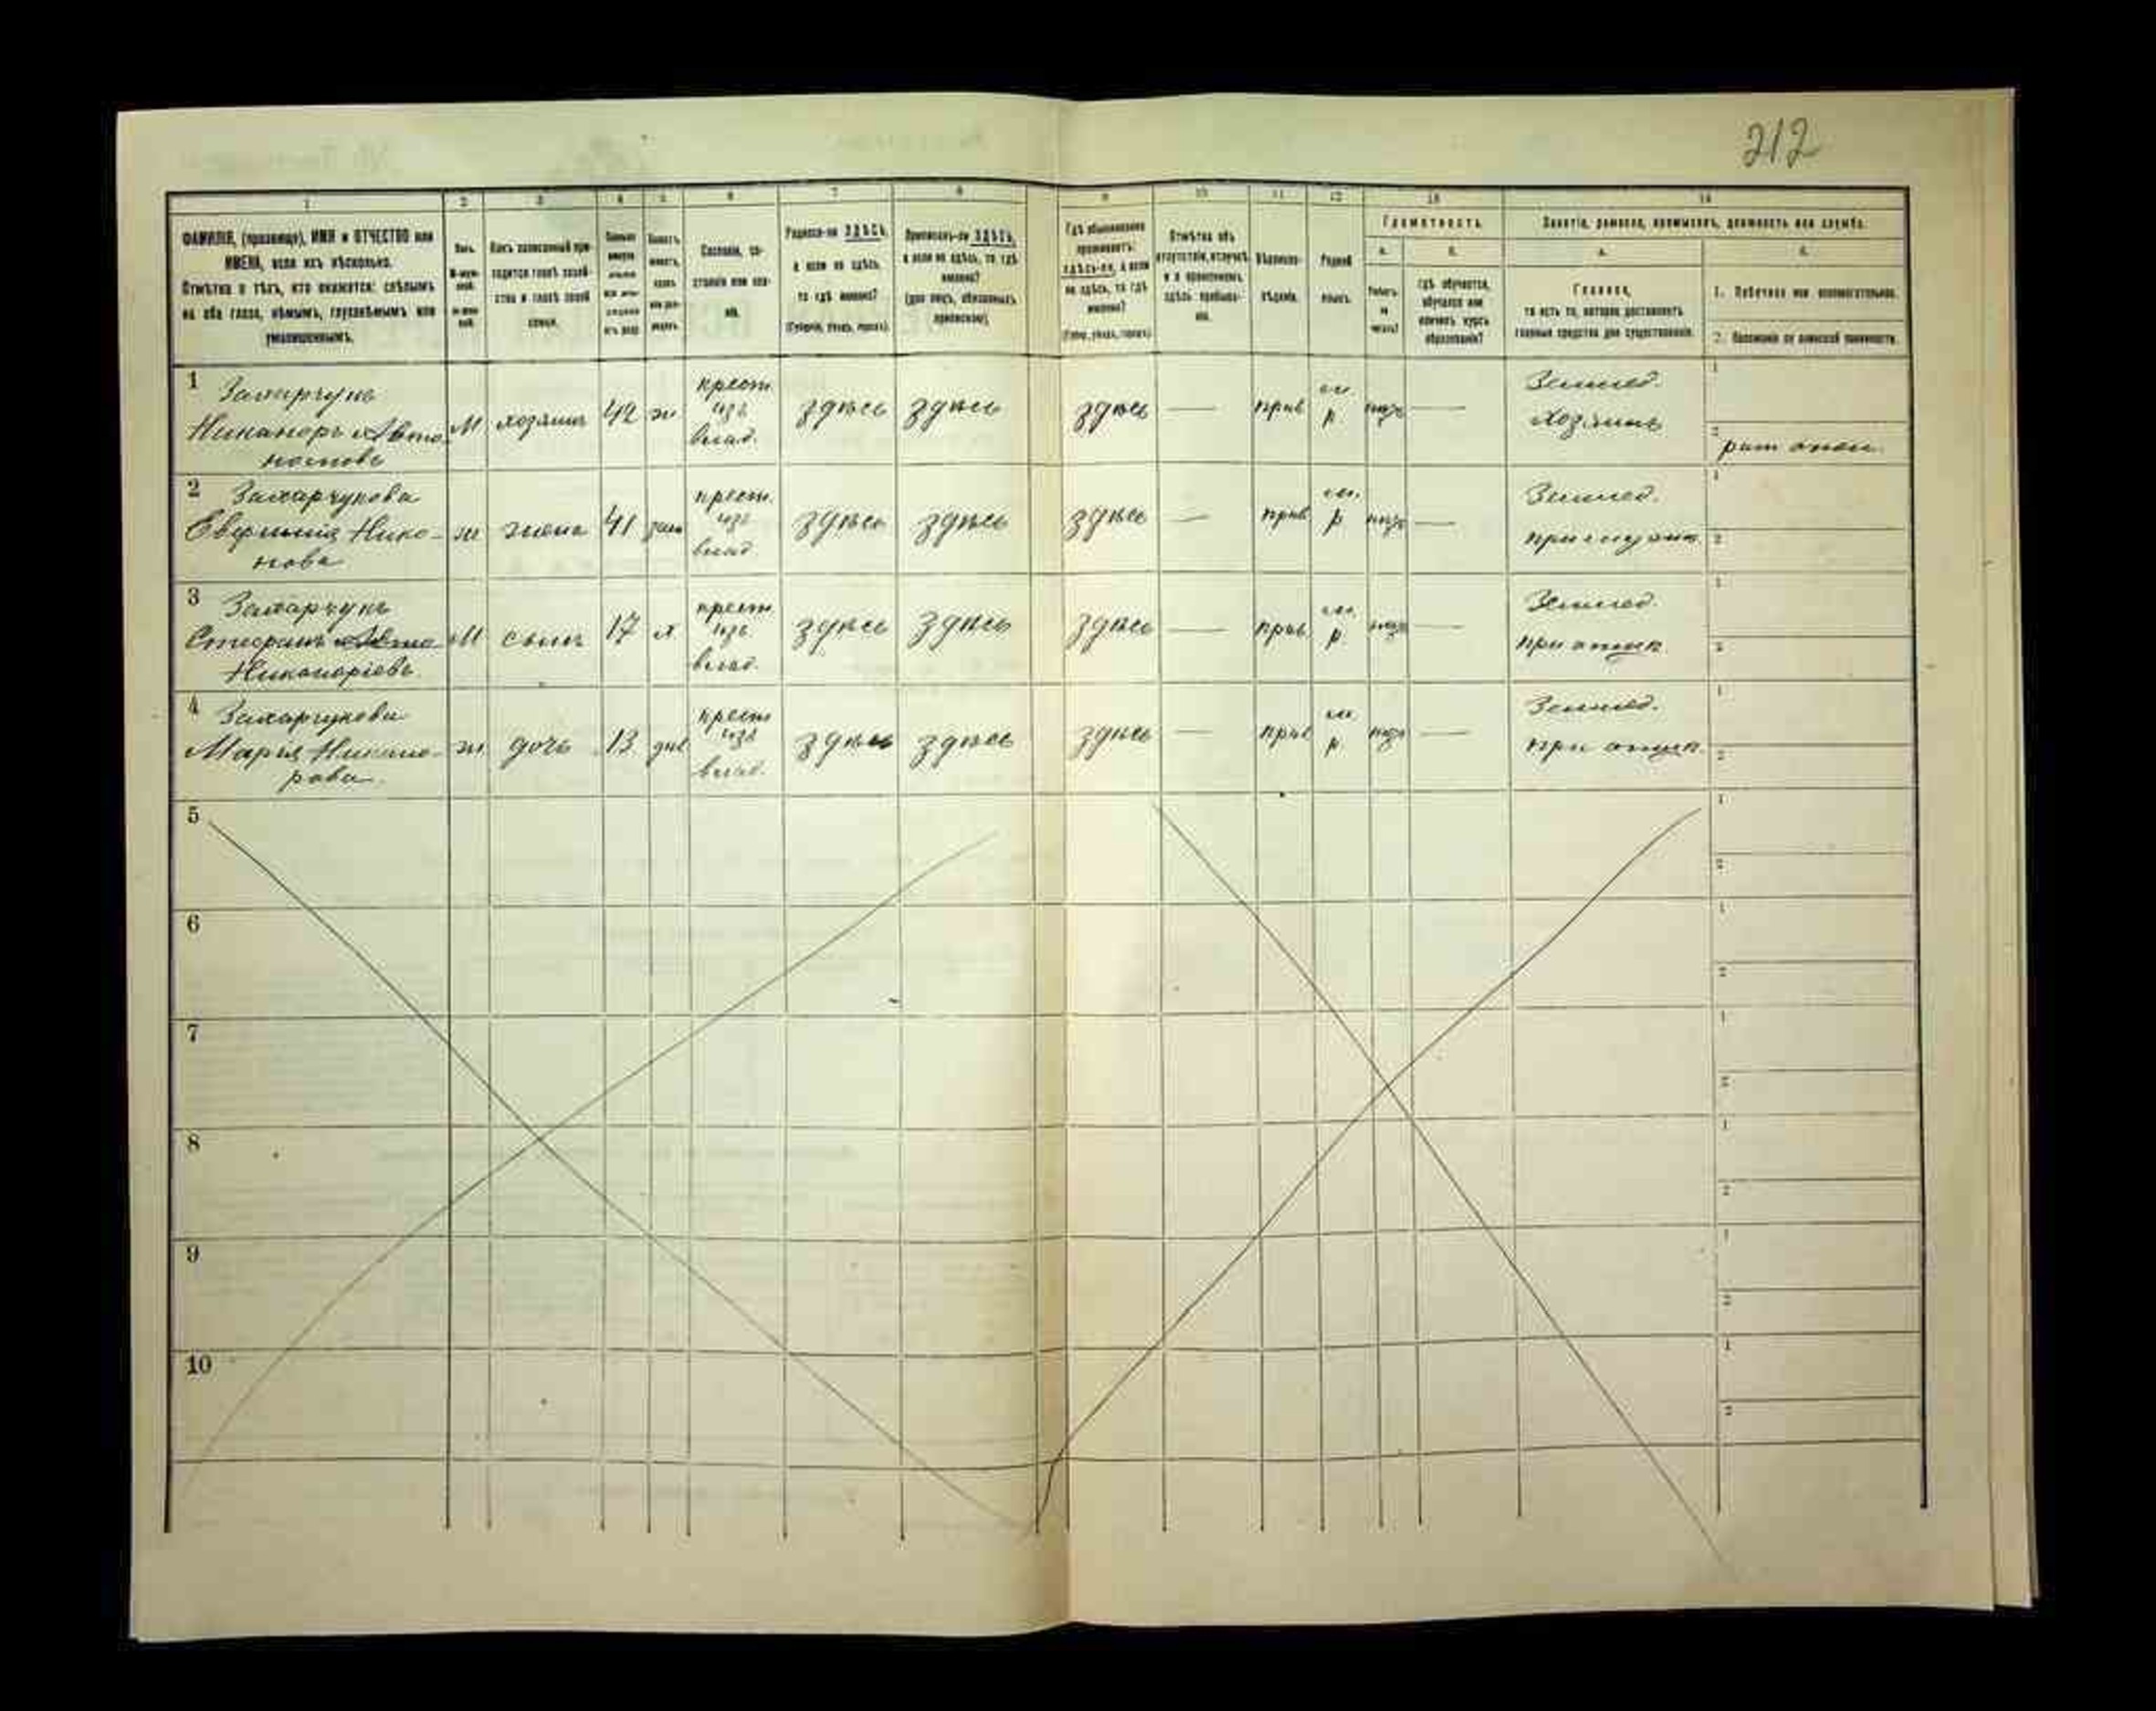 212
1 2 3 4 5 6 7 8 9 10 11 12 13 14
ФАМИЛІЯ, (прозвище), ИМЯ и ОТЧЕСТВО или
ИМЕНА, если ихъ нѣсколько.
Отмѣтка о тѣхъ, кто окажется: слѣпымъ
на оба глаза, нѣмымъ, глухонѣмымъ или
умалишеннымъ.
Полъ.
Какъ записанный при-
ходится главѣ хозяй-
ства и главѣ своей
семьи.
Сословіе, со-
стояніе или зва-
ніе.
Родился-ли ЗДѢСЬ,
а если не здѣсь,
то гдѣ именно?
(Губернія, уѣздъ, городъ).
Приписанъ-ли ЗДѢСЬ,
а если не здѣсь, то гдѣ
именно?
(для лицъ, обязанныхъ
припискою).
Гдѣ обыкновенно
проживаетъ:
здѣсь-ли, а если
не здѣсь, то гдѣ
именно?
(Губер., уѣздъ, городъ).
Отмѣтка объ
отсутствіи, отлучкѣ
и о временномъ
здѣсь пребыва-
ніи.
Вѣроиспо-
вѣданіе.
Родной
языкъ.
Грамотность.
а. б.
Умѣетъ
ли
читать?
Гдѣ обучается,
обучался или
кончилъ курсъ
образованія?
Занятіе, ремесло, промыселъ, должность или служба.
а. б.
Главное,
то есть то, которое доставляетъ
главныя средства для существованія.
1. Побочное или вспомогательное.
2. Положеніе по воинской повинности.
1 Захарчукъ
Никаноръ Авто-
номовъ
М хозяинъ 42 ж
крест.
изъ
влад.
здѣсь здѣсь здѣсь — прав
м.
р.
—
Землед.
хозяинъ
1
2
рат. опол.
2 Захарчукова
Евфимія Нико-
нова
ж жена 41 зам
крест.
изъ
влад.
здѣсь здѣсь здѣсь — прав
м.
р.
—
Землед.
при мужѣ
1
2
3 Захарчукъ
Стефанъ Авто
Никаноріевъ
М сынъ 17 х
крест.
изъ
влад.
здѣсь здѣсь здѣсь — прав
м.
р.
—
Землед.
при отцѣ
1
2
4 Захарчукова
Марія Никано-
рова.
ж дочь 13 дѣв
крест
изъ
влад.
здѣсь здѣсь здѣсь — прав
м
р.
—
Землед.
при отцѣ
1
2
5 1
2
6 1
2
7 1
2
8 1
2
9 1
2
10 1
2